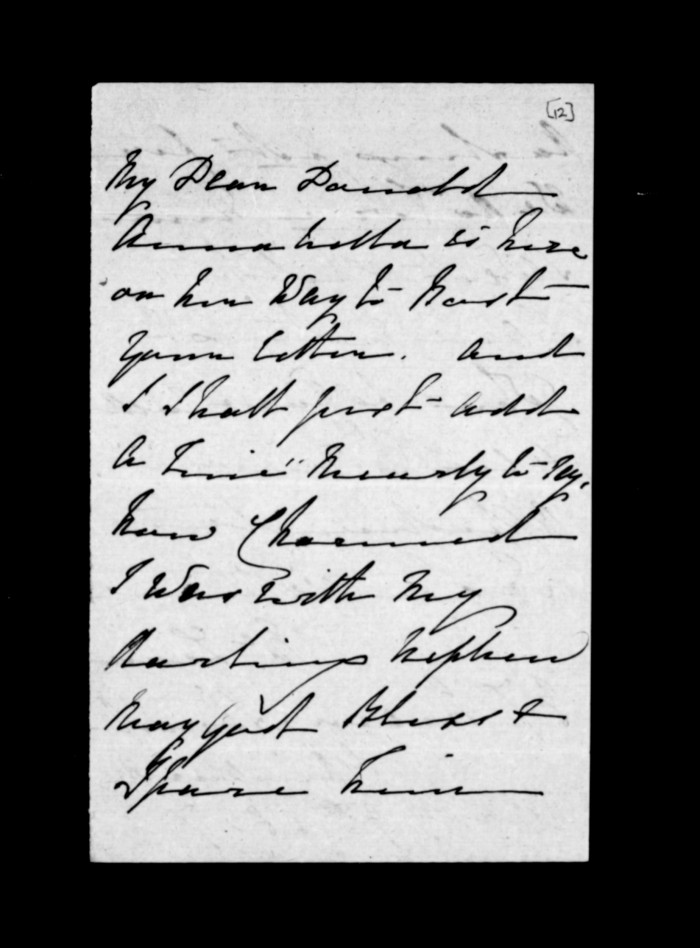 [12]
My Dear Donald
Annabella is here
on her Way to Post
your letter. and
I Shall just add
a Line merely to say,
how Charmed
I Was with My
darling Nephew
may God Bless &
Spare him